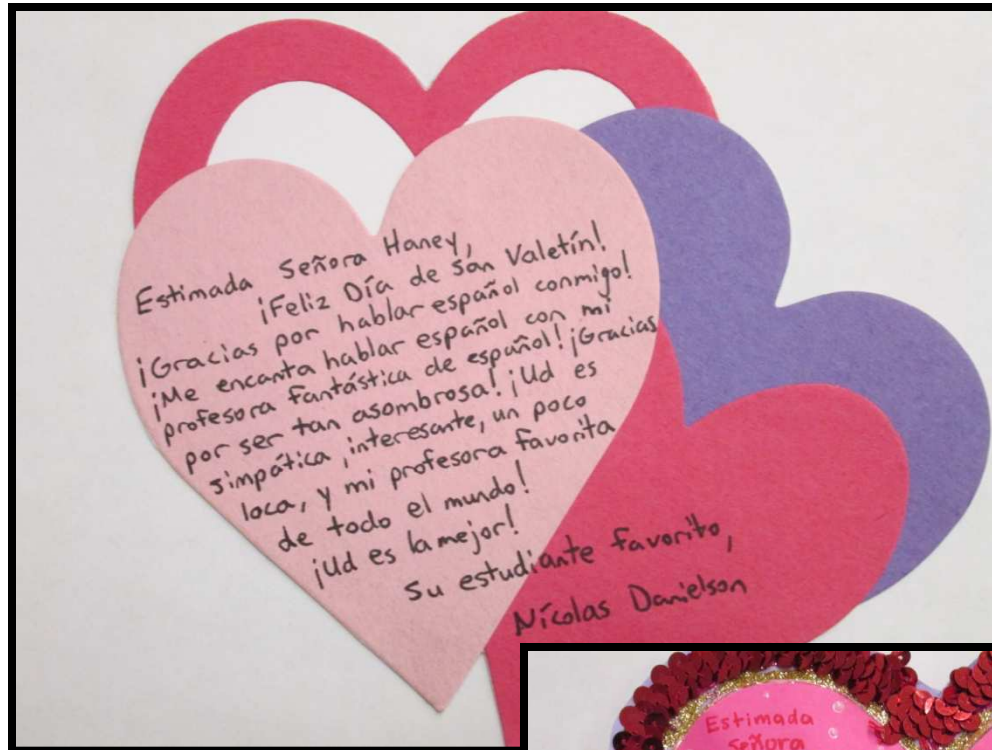 Estimada Señora Haney,
¡Feliz Día de San Valetín!
¡Gracias por hablar español conmigo!
¡Me encanta hablar español con mi
profesora fantástica de español! ¡Gracias
por ser tan asombrosa! ¡Ud es
simpática, interesante, un poco
loca, y mi profesora favorita
de todo el mundo!
¡Ud es la mejor!
Su estudiante favorito,
Nícolas Danielson
Estimada
Señora